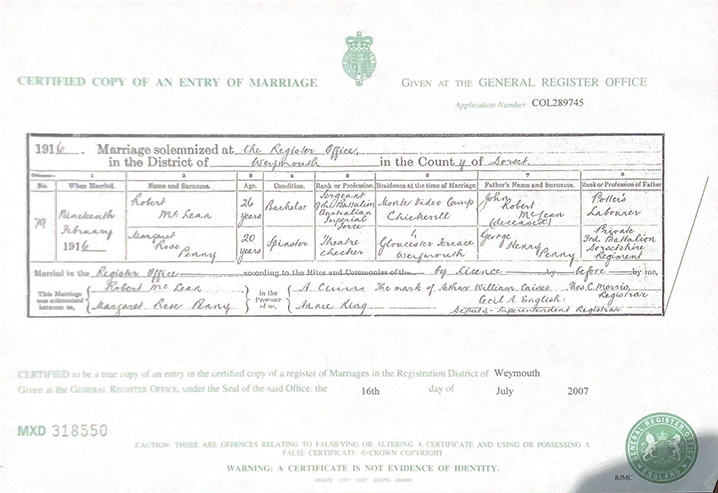 CERTIFIED COPY OF AN ENTRY OF MARRIAGE
GIVEN AT THE GENERAL REGISTER OFFICE
Application Number COL289745
1916. Marriage solemnized at the Register Office,
in the District of Weymouth in the County of Dorset
No. When Married. Name and Surname. Age. Condition. Rank or Profession. Residence at the time of Marriage. Father's Name and Surname. Rank or Profession of Father
1 2 3 4 5 6 7 8
79 Nineteenth February 1916
Robert McLean 26 years Bachelor Sergeant Battalion Australian Imperial Force Monte Video Camp Chickerell John Robert McLean (deceased) Potter's Labourer
Margaret Rose Penny 20 years Spinster Theatre checker Gloucester Terrace Weymouth George Henry Penny Private 3rd. Battalion Dorsetshire Regiment
Married in the Register Office according to the Rites and Ceremonies of the by Licence by before by me,
This Marriage was solemnized between us, Robert McLean
Margaret Rose Penny
in the Presence of us, The mark of Arthur William
Annie King
Thos. C. Morris, Registrar
Cecil A English:
Deputy-Superintendent Registrar
CERTIFIED to be a true copy of an entry in the certified copy of a register of Marriages in the Registration District of Weymouth
Given at the GENERAL REGISTER OFFICE, under the Seal of the said Office, the 16th day of July 2007
MXD 318550
CAUTION: THERE ARE OFFENCES RELATING TO FALSIFYING OR ALTERING A CERTIFICATE AND USING OR POSSESSING A
FALSE CERTIFICATE © CROWN COPYRIGHT
WARNING: A CERTIFICATE IS NOT EVIDENCE OF IDENTITY.
GENERAL REGISTER OFFICE
ENGLAND
RJMC